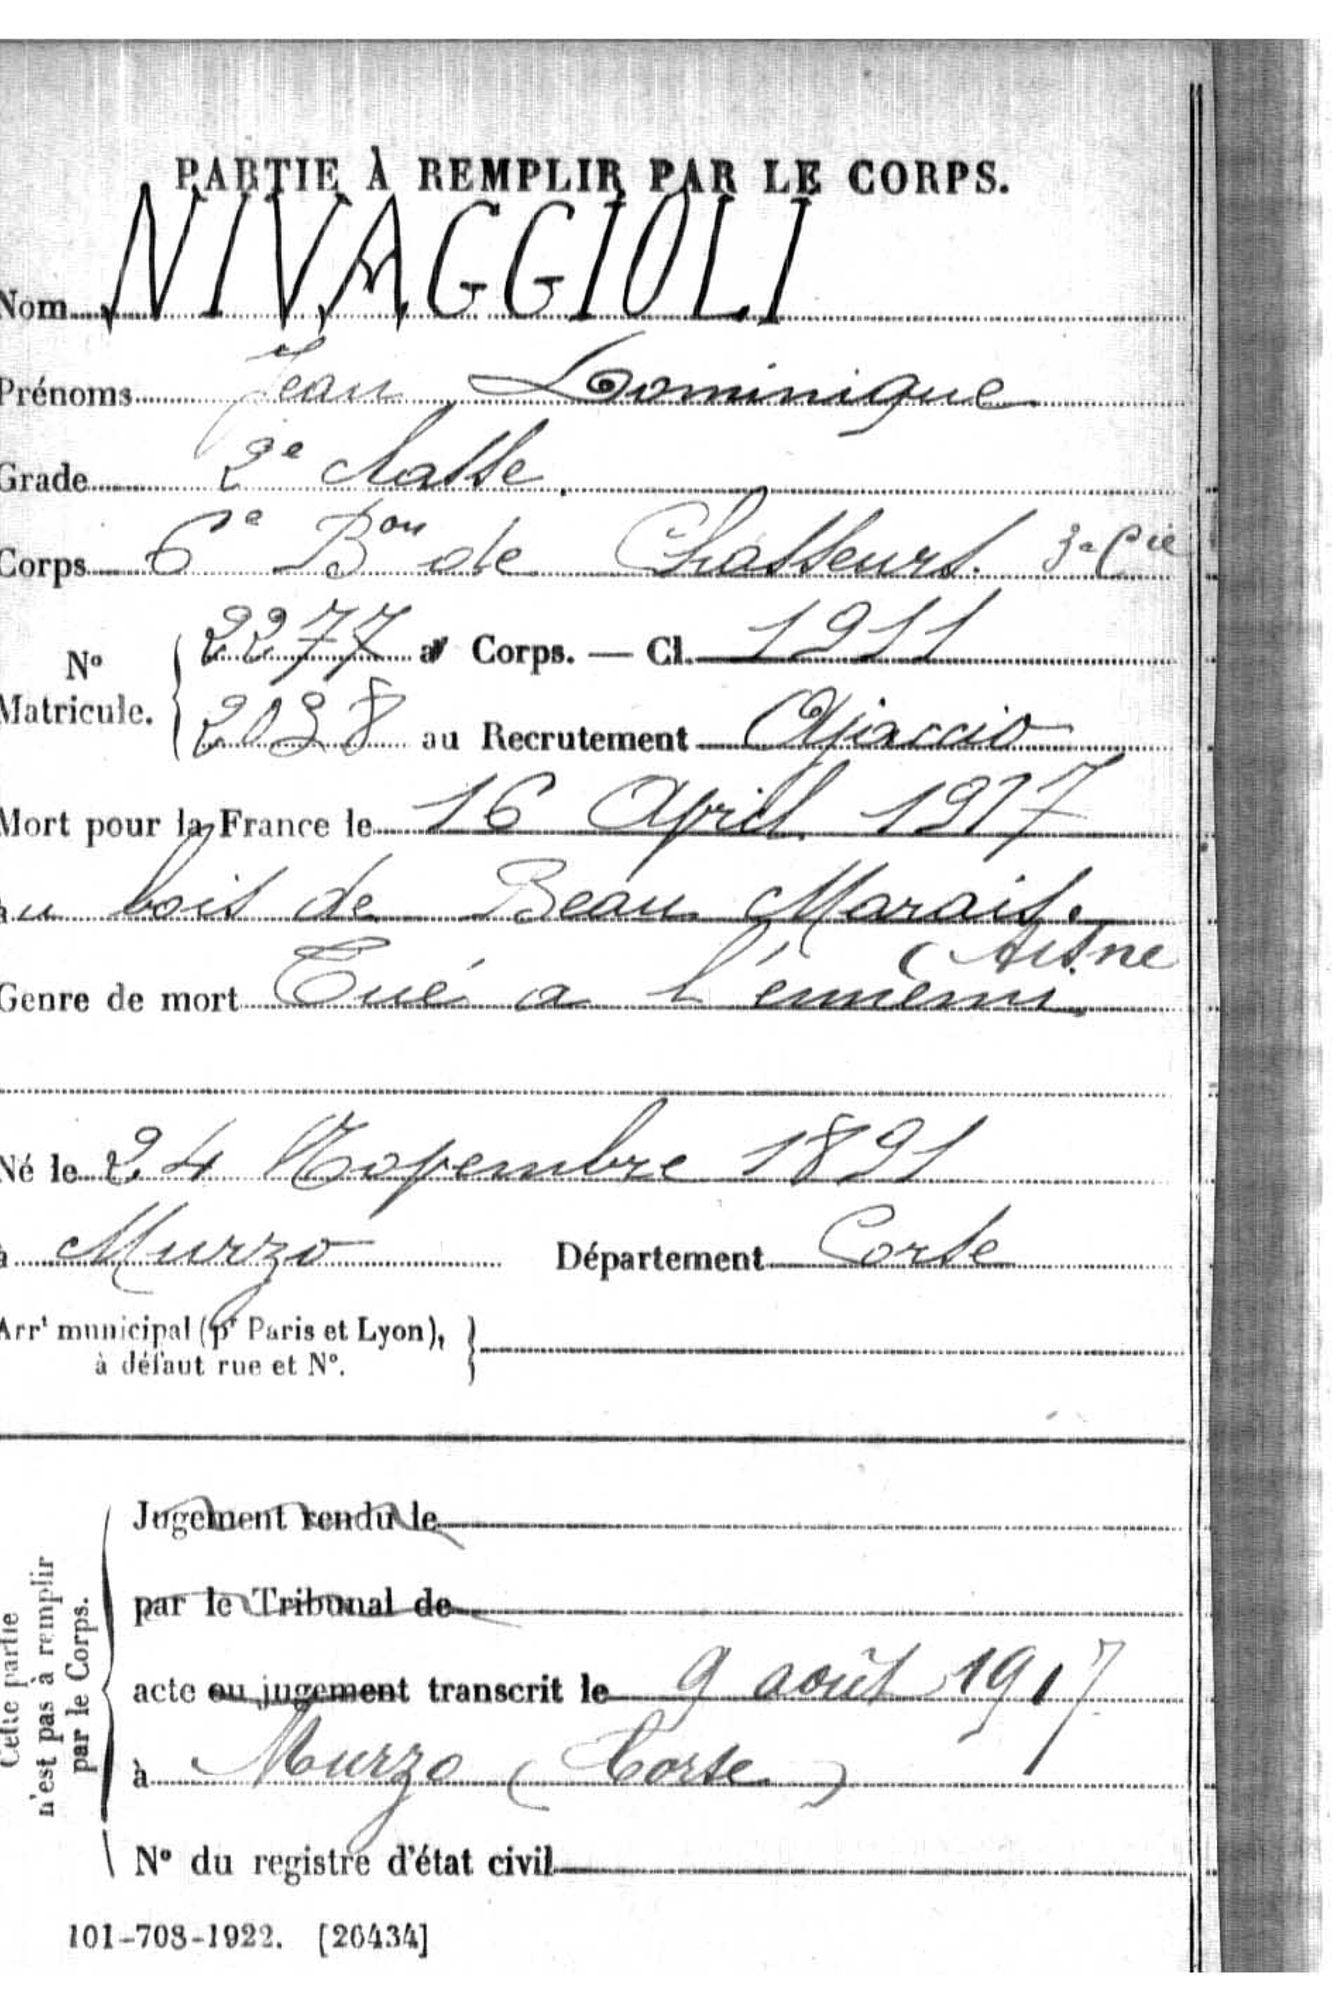 PARTIE À REMPLIR PAR LE CORPS.
Nom NIVAGGIOLI
Prénoms Jean Dominique
Grade 2e classe.
Corps 6e Bon de Chasseurs. 3e Cie
No Matricule.
2277 au Corps. — Cl. 1911
2038 au Recrutement Ajaccio
Mort pour la France le 16 April 1917
au bois de Beau Marais.
( Aisne
Genre de mort Tué a l'ennemi
Né le 24 Novembre 1891
à Murzo Département Corse
Arrt municipal (pr Paris et Lyon),
à défaut rue et No.
Cette partie
n'est pas à remplir
par le Corps.
Jugement rendu le
par le Tribunal de
acte ou jugement transcrit le 9 août 1917
à Murzo (Corse)
No du registre d'état civil
101-708-1922. [26434]